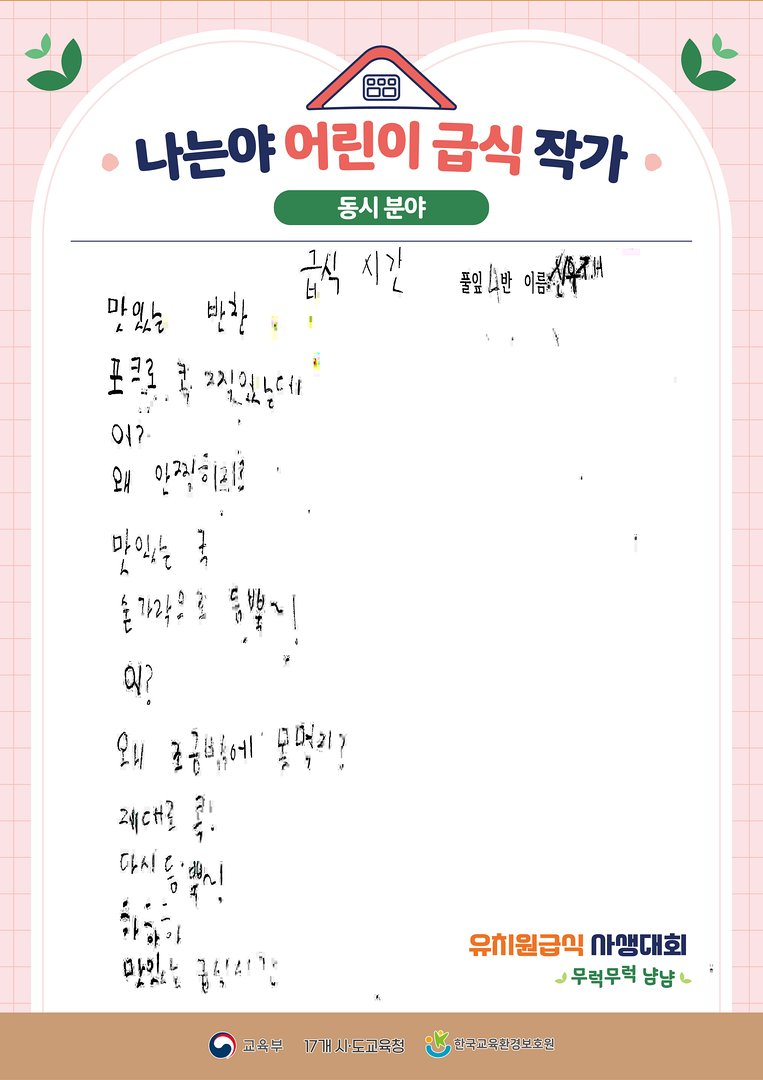 나는야 어린이 급식 작가
동시 분야
급식 시간
풀잎 4반 이름
맛있는 반찬
포크로 콕 찍었는데
어?
왜 안찍히지?
맛있는 국
숟가락으로 듬뿍~!
어?
왜 조금밖에 못먹지?
제대로 콕!
다시 듬뿍~!
하하하
맛있는 급식시간
유치원급식 사생대회
무럭무럭 냠냠
교육부 17개 시·도교육청 한국교육환경보호원